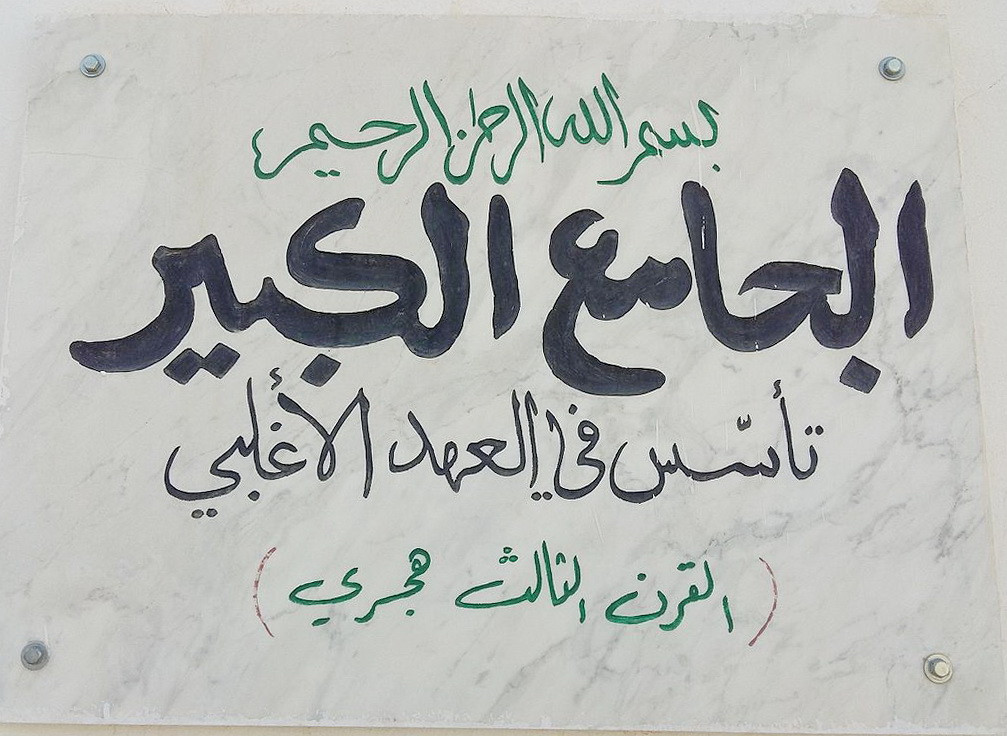 بسم الله الرحمن الرحيم
الجامع الكبير
تأسّس في العهد الأغلبي
(القرن الثالث هجري)